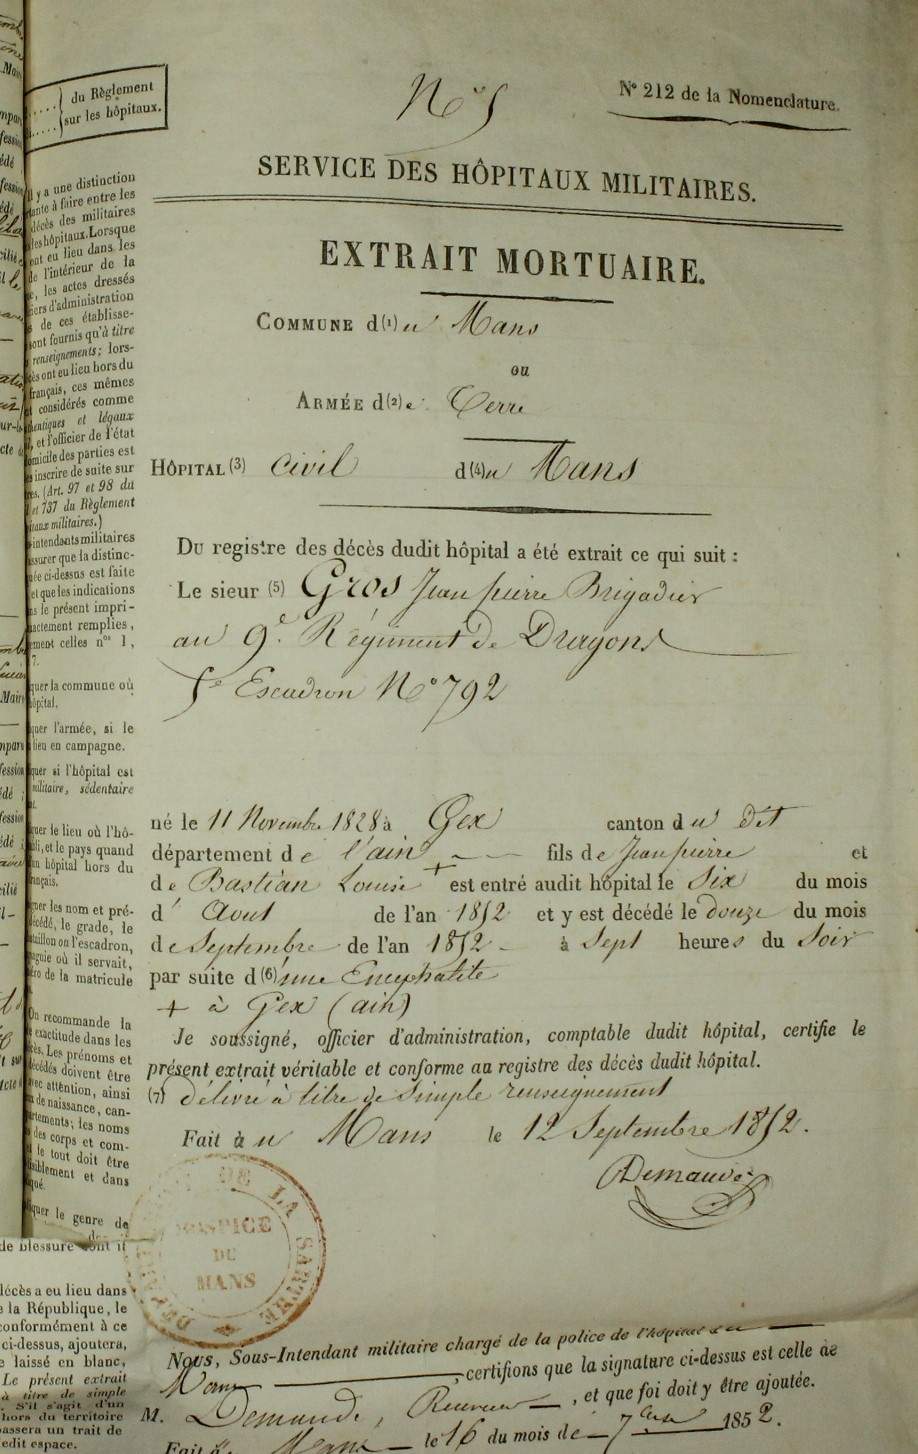 du Règlement
sur les hôpitaux.
N° 5
N° 212 de la Nomenclature.
SERVICE DES HÔPITAUX MILITAIRES.
EXTRAIT MORTUAIRE.
COMMUNE d(1)u Mans
ou
ARMÉE d(2)e Terre
HÔPITAL (3) Civil d(4)u Mans
Du registre des décès dudit hôpital a été extrait ce qui suit :
Le sieur (5) Gros Jean pierre Brigadier
au 9e Régiment de Dragons
5e Escadron N° 792
né le 11 Novembre 1828 à Gex canton du dit
département de l'ain + fils de Jean pierre et
de Bastian Louise est entré audit hôpital le Six du mois
d' Aout de l'an 1852 et y est décédé le douze du mois
de Septembre de l'an 1852 à Sept heures du Soir
par suite d(6)'une Encephalite
+ à Gex (ain)
Je soussigné, officier d'administration, comptable dudit hôpital, certifie le
présent extrait véritable et conforme au registre des décès dudit hôpital.
(7) délivré à titre de simple renseignement
Fait àu Mans le 12 Septembre 1852.
Demaude
DE LA SARTHE
HOSPICE
DU
MANS
Nous, Sous-Intendant militaire chargé de la police de l'hôpital du
Mans, certifions que la signature ci-dessus est celle de
M. Demaude, Receveur, et que foi doit y être ajoutée.
Fait à Mans le 16 du mois de 7bre 1852.
il y a une distinction
à faire entre les
décès des militaires
les hôpitaux. Lorsque
ont eu lieu dans les
de l'intérieur de la
les actes dressés
d'administration
de ces établisse-
sont fournis qu'à titre
renseignements; lors-
ont eu lieu hors du
français, ces mêmes
considérés comme
authentiques et légaux
et l'officier de l'état
domicile des parties est
inscrire de suite sur
(Art. 97 et 98 du
et 737 du Règlement
militaires.)
intendants militaires
assurer que la distinc-
ci-dessus est faite
et que les indications
le présent impri-
exactement remplies,
celles nos 1,
7.
la commune où
hôpital.
l'armée, si le
lieu en campagne.
si l'hôpital est
militaire, sédentaire
le lieu où l'hô-
et le pays quand
hôpital hors du
français.
les nom et pré-
décédé, le grade, le
bataillon ou l'escadron,
où il servait,
de la matricule
On recommande la
exactitude dans les
Les prénoms et
décédés doivent être
avec attention, ainsi
de naissance, can-
les noms
des corps et com-
le tout doit être
lisiblement et dans
le genre de
de blessure dont il
décès a eu lieu dans
la République, le
conformément à ce
ci-dessus, ajoutera,
laissé en blanc,
Le présent extrait
à titre de simple
S'il s'agit d'un
hors du territoire
passera un trait de
ledit espace.